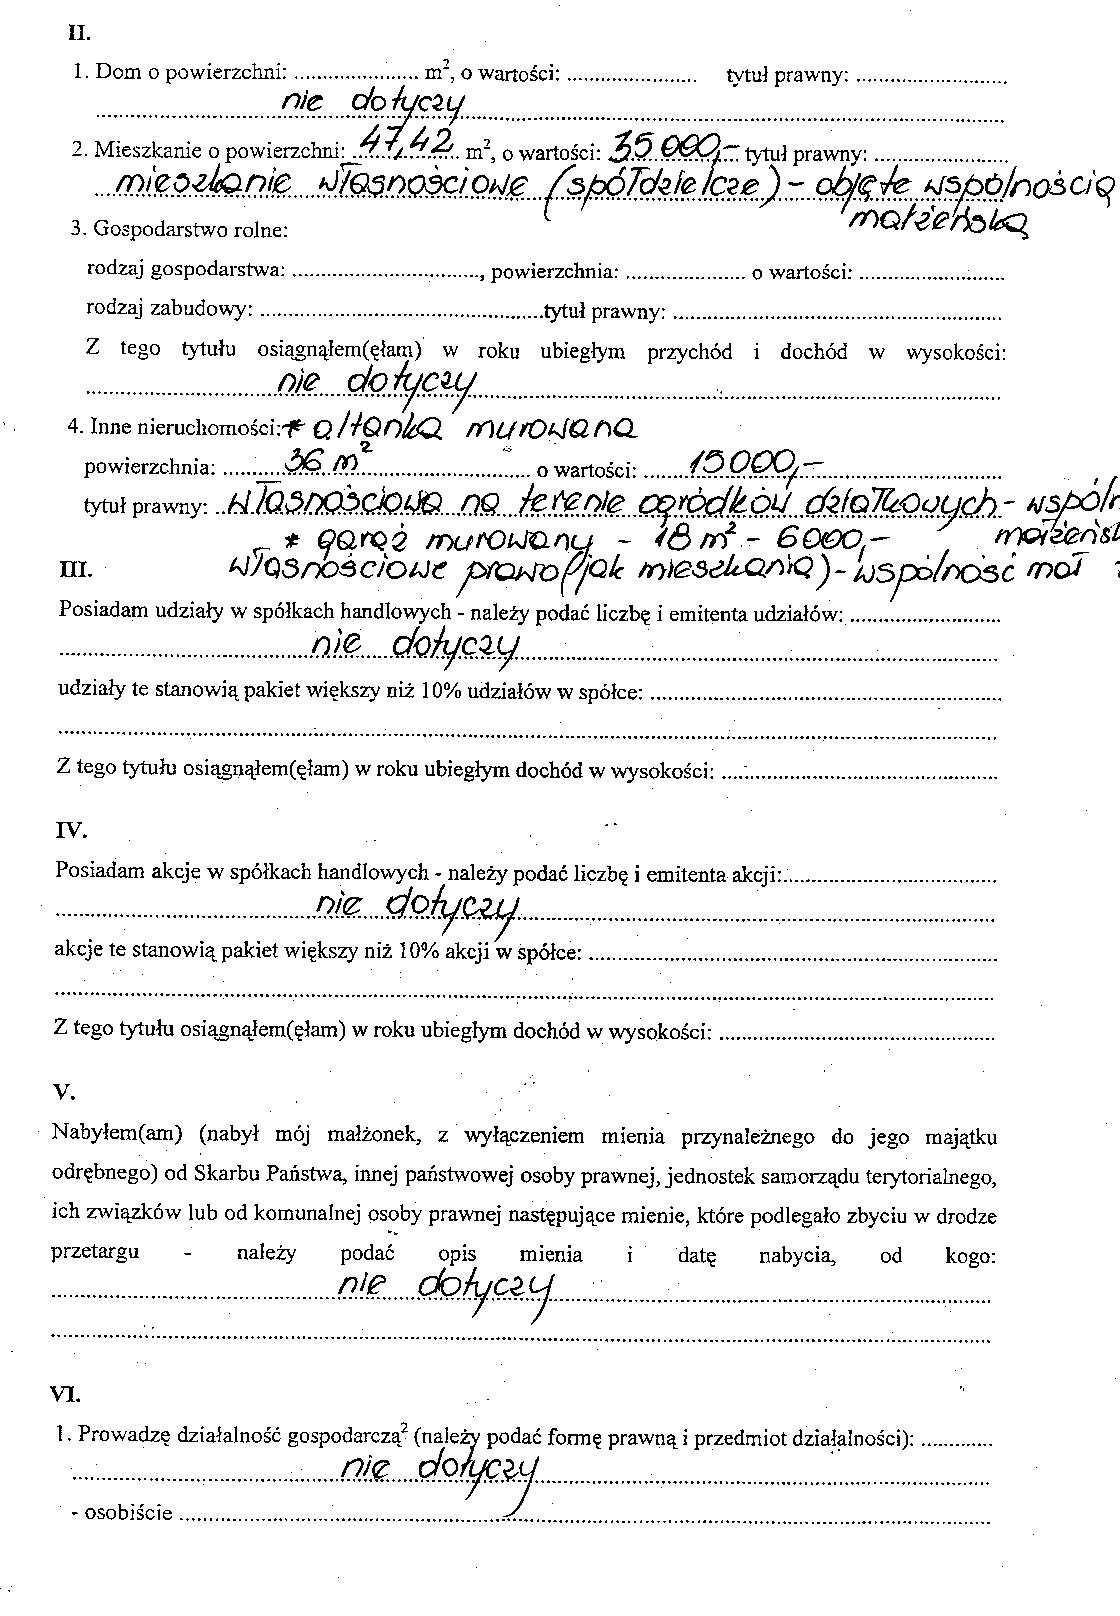 II.
1. Dom o powierzchni: ...................... m², o wartości: ....................... tytuł prawny: ...........................
nie dotyczy
2. Mieszkanie o powierzchni: 47,42 m², o wartości: 35 000,- tytuł prawny: ........................
mieszkanie własnościowe (spółdzielcze) - objęte wspólnością
małżeńską
3. Gospodarstwo rolne:
rodzaj gospodarstwa: .................................., powierzchnia: ..................... o wartości: ..........................
rodzaj zabudowy: ..................................................tytuł prawny: ...........................................................
Z tego tytułu osiągnąłem(ęłam) w roku ubiegłym przychód i dochód w wysokości:
nie dotyczy
4. Inne nieruchomości: * altanka murowana
powierzchnia: 36 m² o wartości: 15 000,-
tytuł prawny: własnościowa na terenie ogródków działkowych - wspóln
* garaż murowany - 18 m² - 6000,- małżeńs
III. własnościowe prawo (jak mieszkania) - wspólność mał
Posiadam udziały w spółkach handlowych - należy podać liczbę i emitenta udziałów: ...........................
nie dotyczy
udziały te stanowią pakiet większy niż 10% udziałów w spółce: ..............................................................
....................................................................................................
Z tego tytułu osiągnąłem(ęłam) w roku ubiegłym dochód w wysokości: ..................................................
IV.
Posiadam akcje w spółkach handlowych - należy podać liczbę i emitenta akcji:......................................
nie dotyczy
akcje te stanowią pakiet większy niż 10% akcji w spółce: .........................................................................
....................................................................................................
Z tego tytułu osiągnąłem(ęłam) w roku ubiegłym dochód w wysokości: .................................................
V.
Nabyłem(am) (nabył mój małżonek, z wyłączeniem mienia przynależnego do jego majątku
odrębnego) od Skarbu Państwa, innej państwowej osoby prawnej, jednostek samorządu terytorialnego,
ich związków lub od komunalnej osoby prawnej następujące mienie, które podlegało zbyciu w drodze
przetargu - należy podać opis mienia i datę nabycia, od kogo:
nie dotyczy
....................................................................................................
VI.
1. Prowadzę działalność gospodarczą² (należy podać formę prawną i przedmiot działalności): .............
nie dotyczy
- osobiście ....................................................................................................